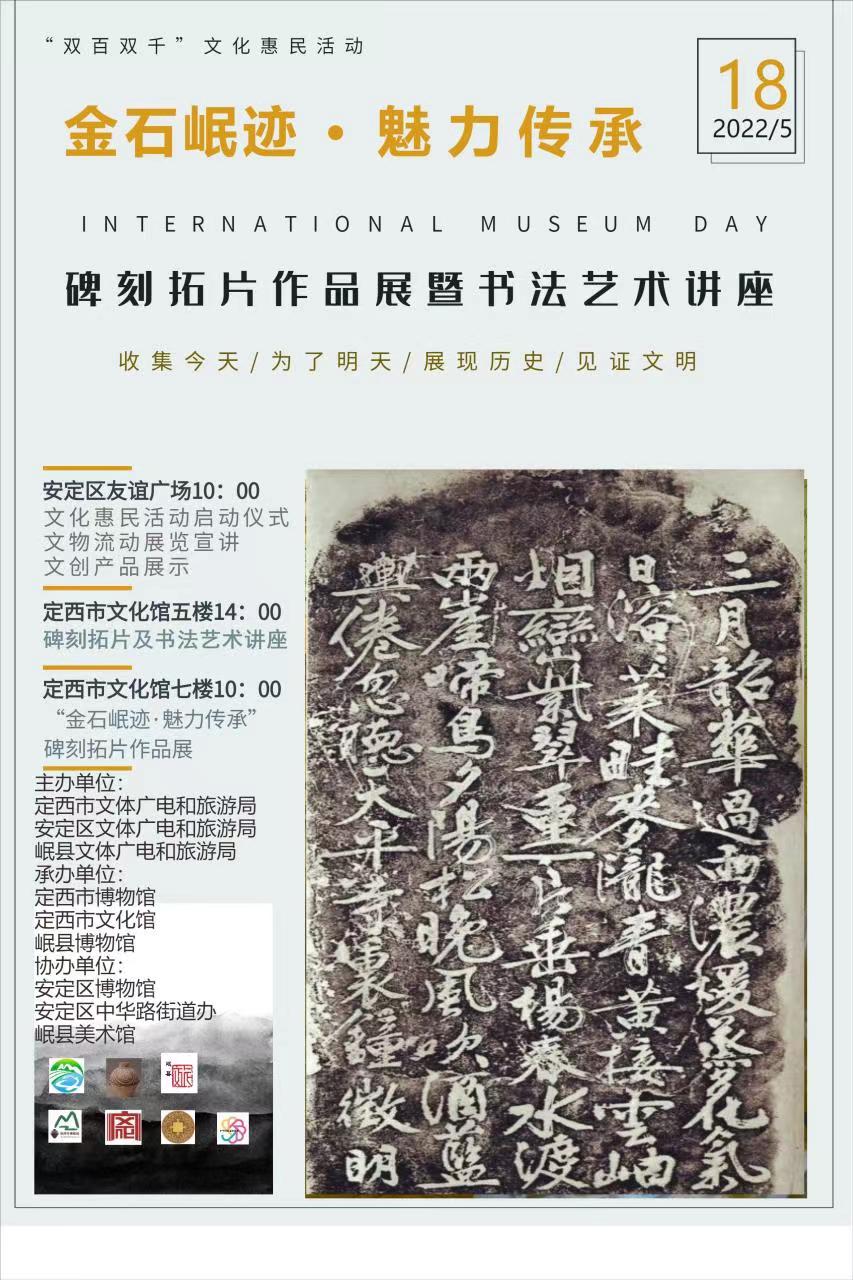 “双百双千”文化惠民活动
18
2022/5
金石岷迹·魅力传承
INTERNATIONAL MUSEUM DAY
碑刻拓片作品展暨书法艺术讲座
收集今天/为了明天/展现历史/见证文明
安定区友谊广场10：00
文化惠民活动启动仪式
文物流动展览宣讲
文创产品展示
定西市文化馆五楼14：00
碑刻拓片及书法艺术讲座
定西市文化馆七楼10：00
“金石岷迹·魅力传承”
碑刻拓片作品展
主办单位：
定西市文体广电和旅游局
安定区文体广电和旅游局
岷县文体广电和旅游局
承办单位：
定西市博物馆
定西市文化馆
岷县博物馆
协办单位：
安定区博物馆
安定区中华路街道办
岷县美术馆
三月韶華過雨濃煖蒸花氣
日溶菜畦麥隴青黄接雲岫
烟巒紫翠重一片垂楊春水渡
兩崖啼鳥夕陽松晚風欠酒藍
輿倦忽聴天井寺裏鐘徴明